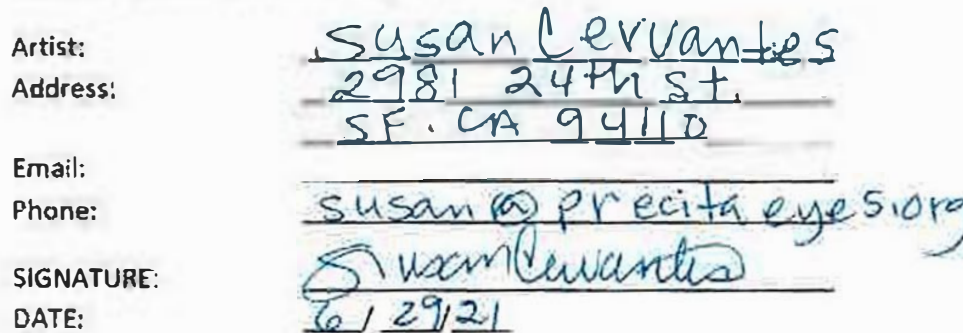 Artist: Susan Cervantes
Address: 2981 24th St.
SF. CA 94110
Email:
Phone: susan@precitaeyes.org
SIGNATURE: Susan Cervantes
DATE: 6/29/21